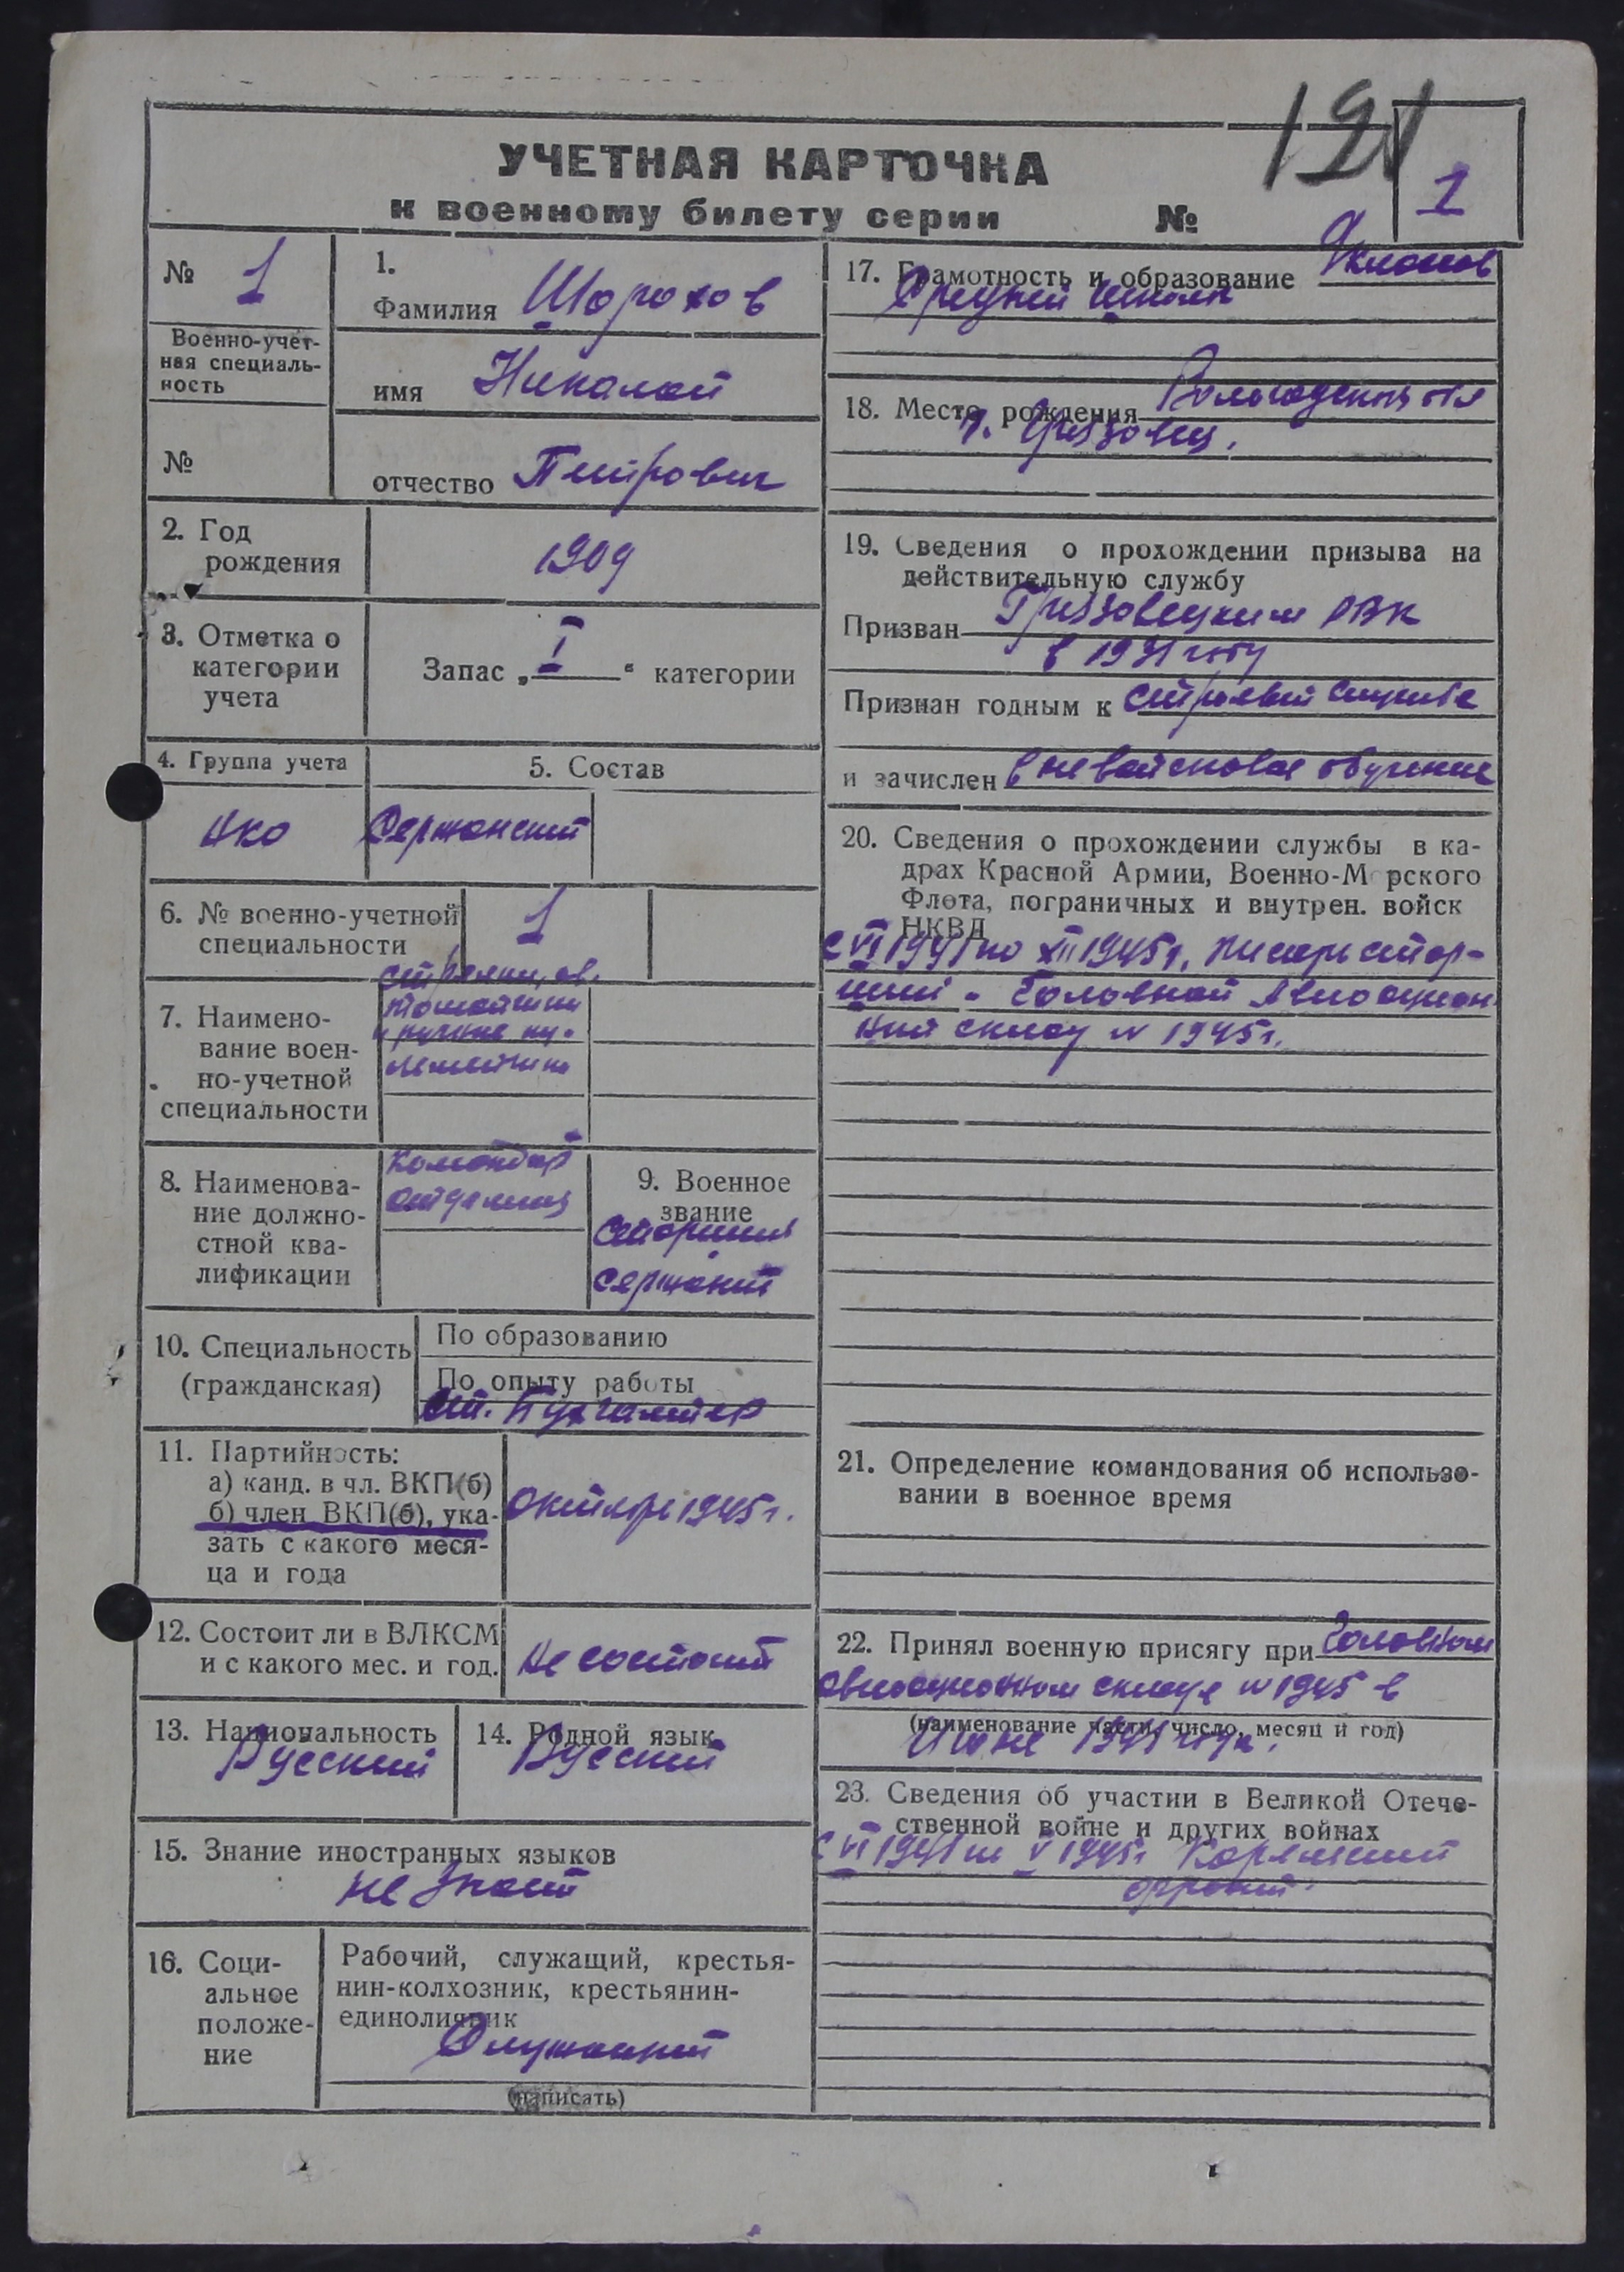 121
УЧЕТНАЯ КАРТОЧКА
1
к военному билету серии №
№ 1
Военно-учет-
ная специаль-
ность
№
1.
Фамилия Шорохов
имя Николай
отчество Петрович
2. Год
рождения
1909
3. Отметка о
категории
учета
Запас „ I “ категории
4. Группа учета
5. Состав
Сержантский
6. № военно-учетной
специальности
1
7. Наимено-
вание воен-
но-учетной
специальности
стрелки, ав-
томатчики
и ручные пу-
леметчики
8. Наименова-
ние должно-
стной ква-
лификации
Командир
отделения
9. Военное
звание
Старший
сержант
10. Специальность
(гражданская)
По образованию
По опыту работы
ст. Бухгалтер
11. Партийность:
а) канд. в чл. ВКП(б)
б) член ВКП(б), ука-
зать с какого меся-
ца и года
Октябрь 1945 г.
12. Состоит ли в ВЛКСМ
и с какого мес. и год.
Не состоит
13. Национальность
Русский
14. Родной язык
Русский
15. Знание иностранных языков
не знает
16. Соци-
альное
положе-
ние
Рабочий, служащий, крестья-
нин-колхозник, крестьянин-
единоличник
Служащий
(написать)
17. Грамотность и образование 9 классов
Средней школы
18. Место рождения Вологодская обл
г. Грязовец.
19. Сведения о прохождении призыва на
действительную службу
Призван Грязовецким РВК
в 1931 году
Признан годным к строевой службе
и зачислен вневойсковое обучение
20. Сведения о прохождении службы в ка-
драх Красной Армии, Военно-Морского
Флота, пограничных и внутрен. войск
НКВД
с VI 1941 по XII 1945 г. писарь стар-
ший - Головной Авиацион
ный склад № 1945 г.
21. Определение командования об использо-
вании в военное время
22. Принял военную присягу при Головном
авиационном складе № 1945 в
(наименование части, число, месяц и год)
Июне 1941 года.
23. Сведения об участии в Великой Отече-
ственной войне и других войнах
с VI 1941 по V 1945 г Карельский
фронт.